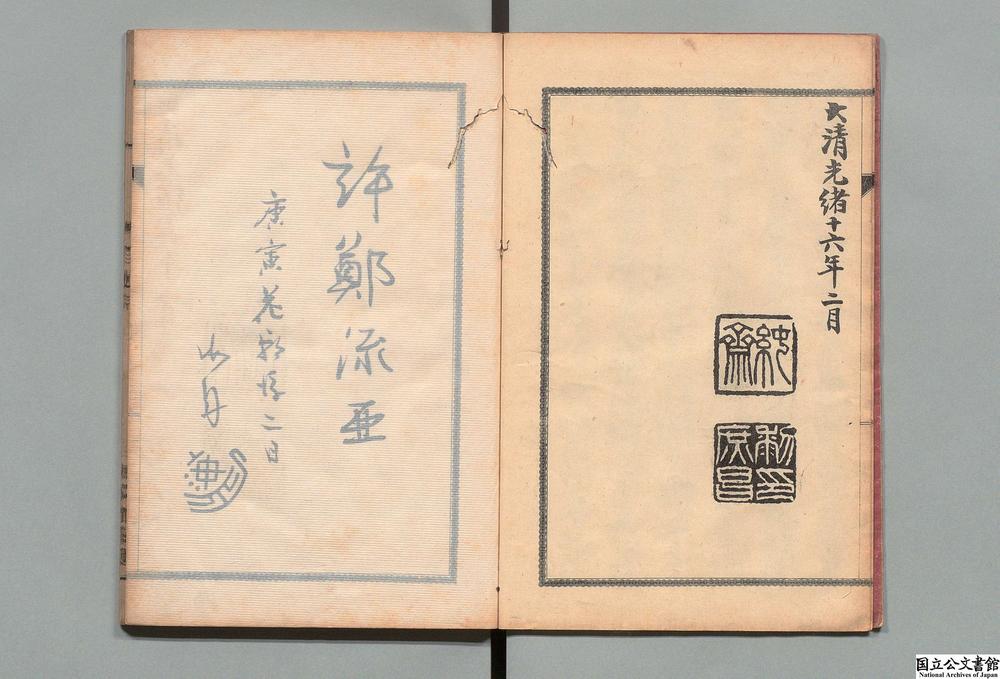 大清光緒十六年二月
純齋
黎印庶昌
許鄭流亞
庚寅花朝後二日
国立公文書館
National Archives of Japan